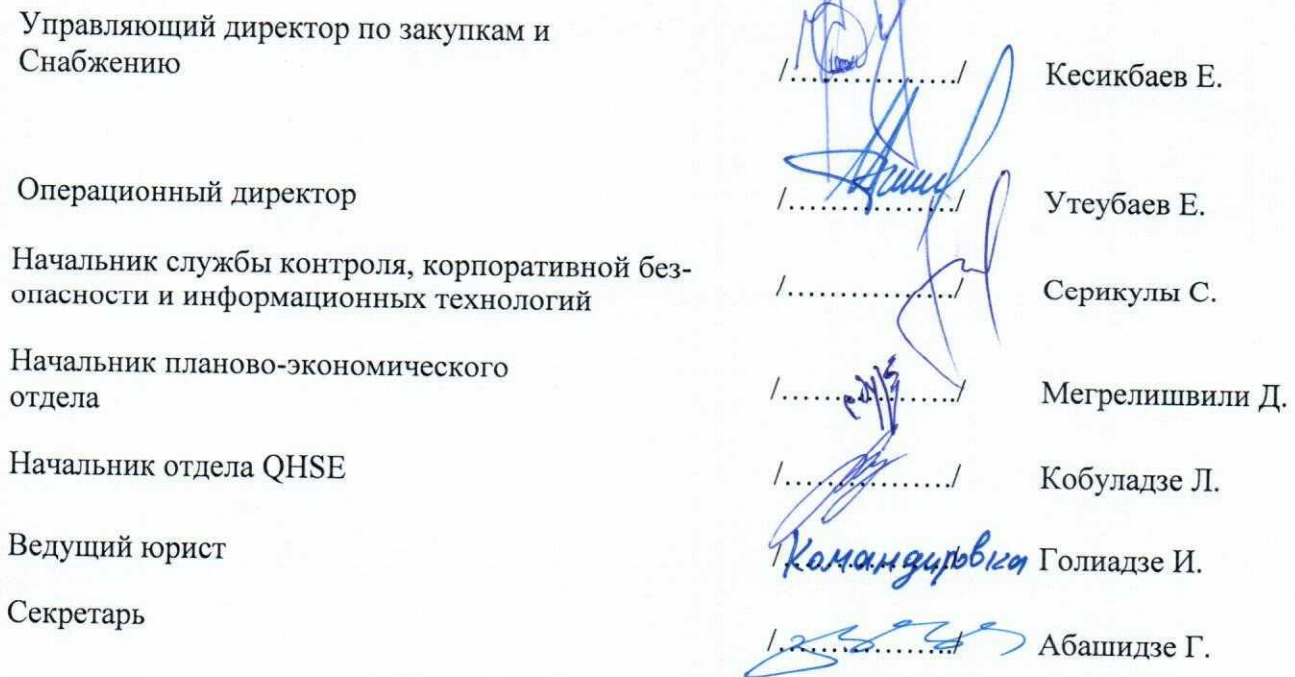 Управляющий директор по закупкам и
Снабжению /................/ Кесикбаев Е.
Операционный директор /................/ Утеубаев Е.
Начальник службы контроля, корпоративной без-
опасности и информационных технологий /................/ Серикулы С.
Начальник планово-экономического
отдела /................/ Мегрелишвили Д.
Начальник отдела QHSE /................/ Кобуладзе Л.
Ведущий юрист /Командировка/ Голиадзе И.
Секретарь /................/ Абашидзе Г.